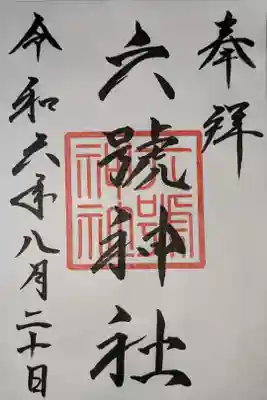 奉拝
六號神社
六號神社
令和六年八月二十日